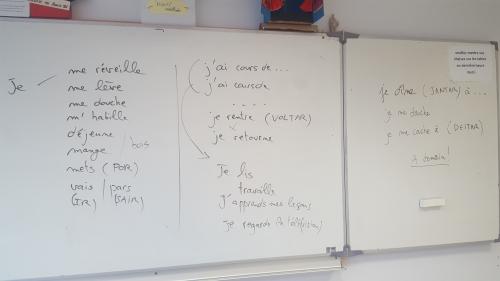 Je
me réveille
me lève
me douche
m'habille
déjeune
mange / bois
mets (POR)
vais / pars
(IR) (SAIR)
j'ai cours de ...
j'ai cours de
....
je rentre (VOLTAR)
je retourne
Je lis
travaille
J'apprends mes leçons
je regarde la télé(vision)
je dîne (JANTAR) à ...
je me douche
je me couche à (DEITAR)
à demain!